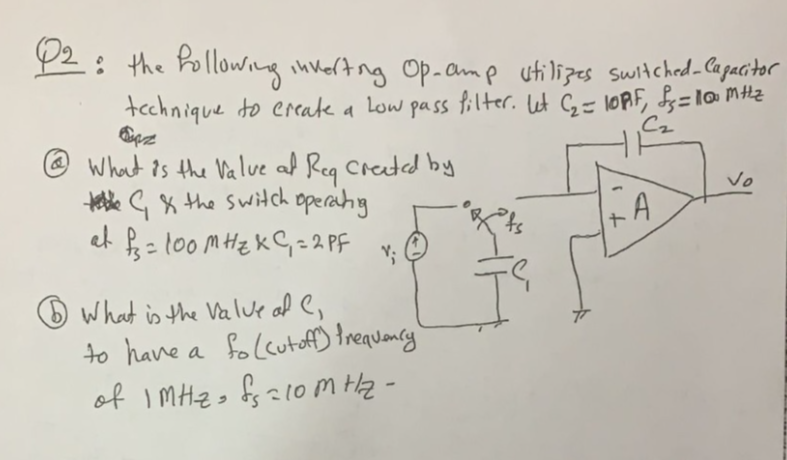 Q2 : the following inverting Op-amp utilizes switched-Capacitor
technique to create a Low pass filter. let C2 = 10PF, fs = 100 MHz
(a) What is the Value of Req Created by
C1 & the switch operating
at fs = 100 MHz & C1 = 2 PF
(b) What is the Value of C1
to have a fo (cutoff) frequency
of 1 MHz, fs = 10 MHz -
C2
Vo
- A
+
fs
Vi
+
-
C1